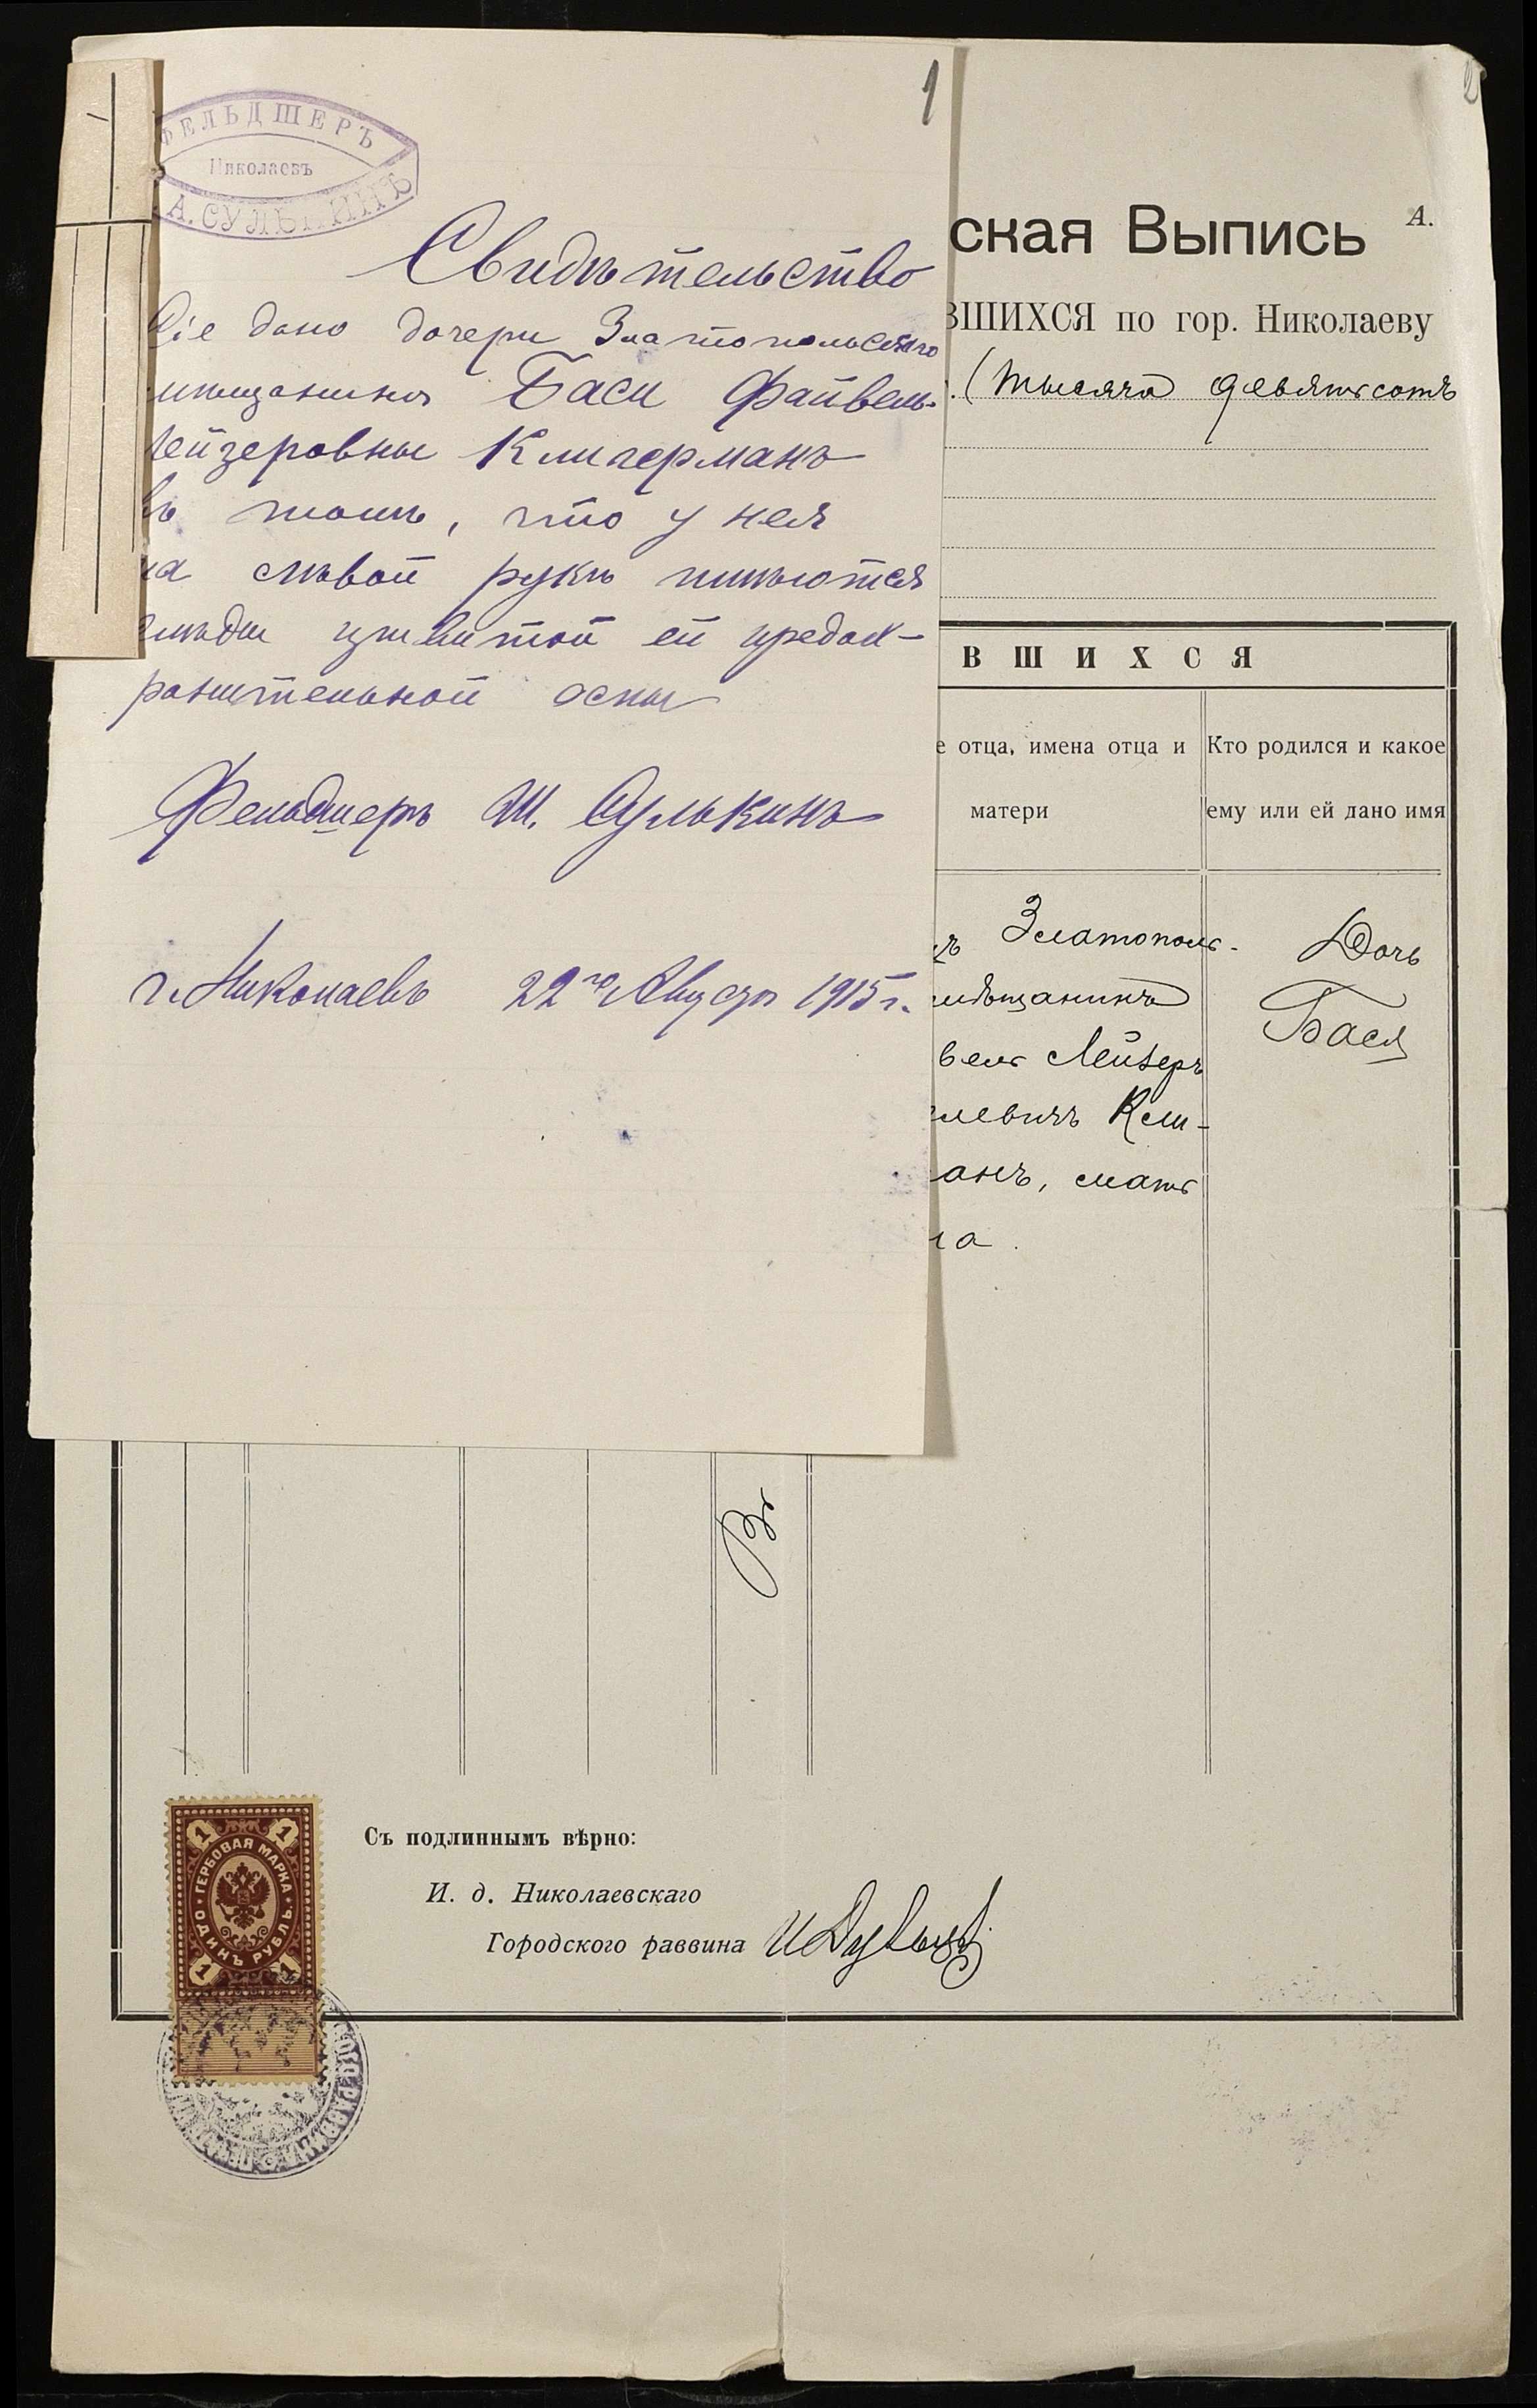 1
ФЕЛЬДШЕРЪ
Николаевъ
А. СУЛЬКИНЪ
Свидѣтельство
Сіе дано дочери Златопольскаго
мѣщанина Баси Файвель-
Лейзеровны Клигерманъ
въ томъ, что у нея
на лѣвой рукѣ имѣются
слѣды привитой ей предох-
ранительной оспы
Фельдшеръ Ш. Сулькинъ
г. Николаевъ 22го Августа 1915 г.
2
ская Выпись
А.
ВШИХСЯ по гор. Николаеву
(тысяча девятьсотъ
ВШИХСЯ
е отца, имена отца и
матери
Кто родился и какое
ему или ей дано имя
Златополь-
мѣщанинъ
вель Лейзеръ
левичъ Кли-
анъ, мать
на.
Дочь
Бася
Съ подлиннымъ вѣрно:
И. д. Николаевскаго
Городского раввина
1 1
ГЕРБОВАЯ МАРКА
ОДИНЪ РУБЛЬ
1 1